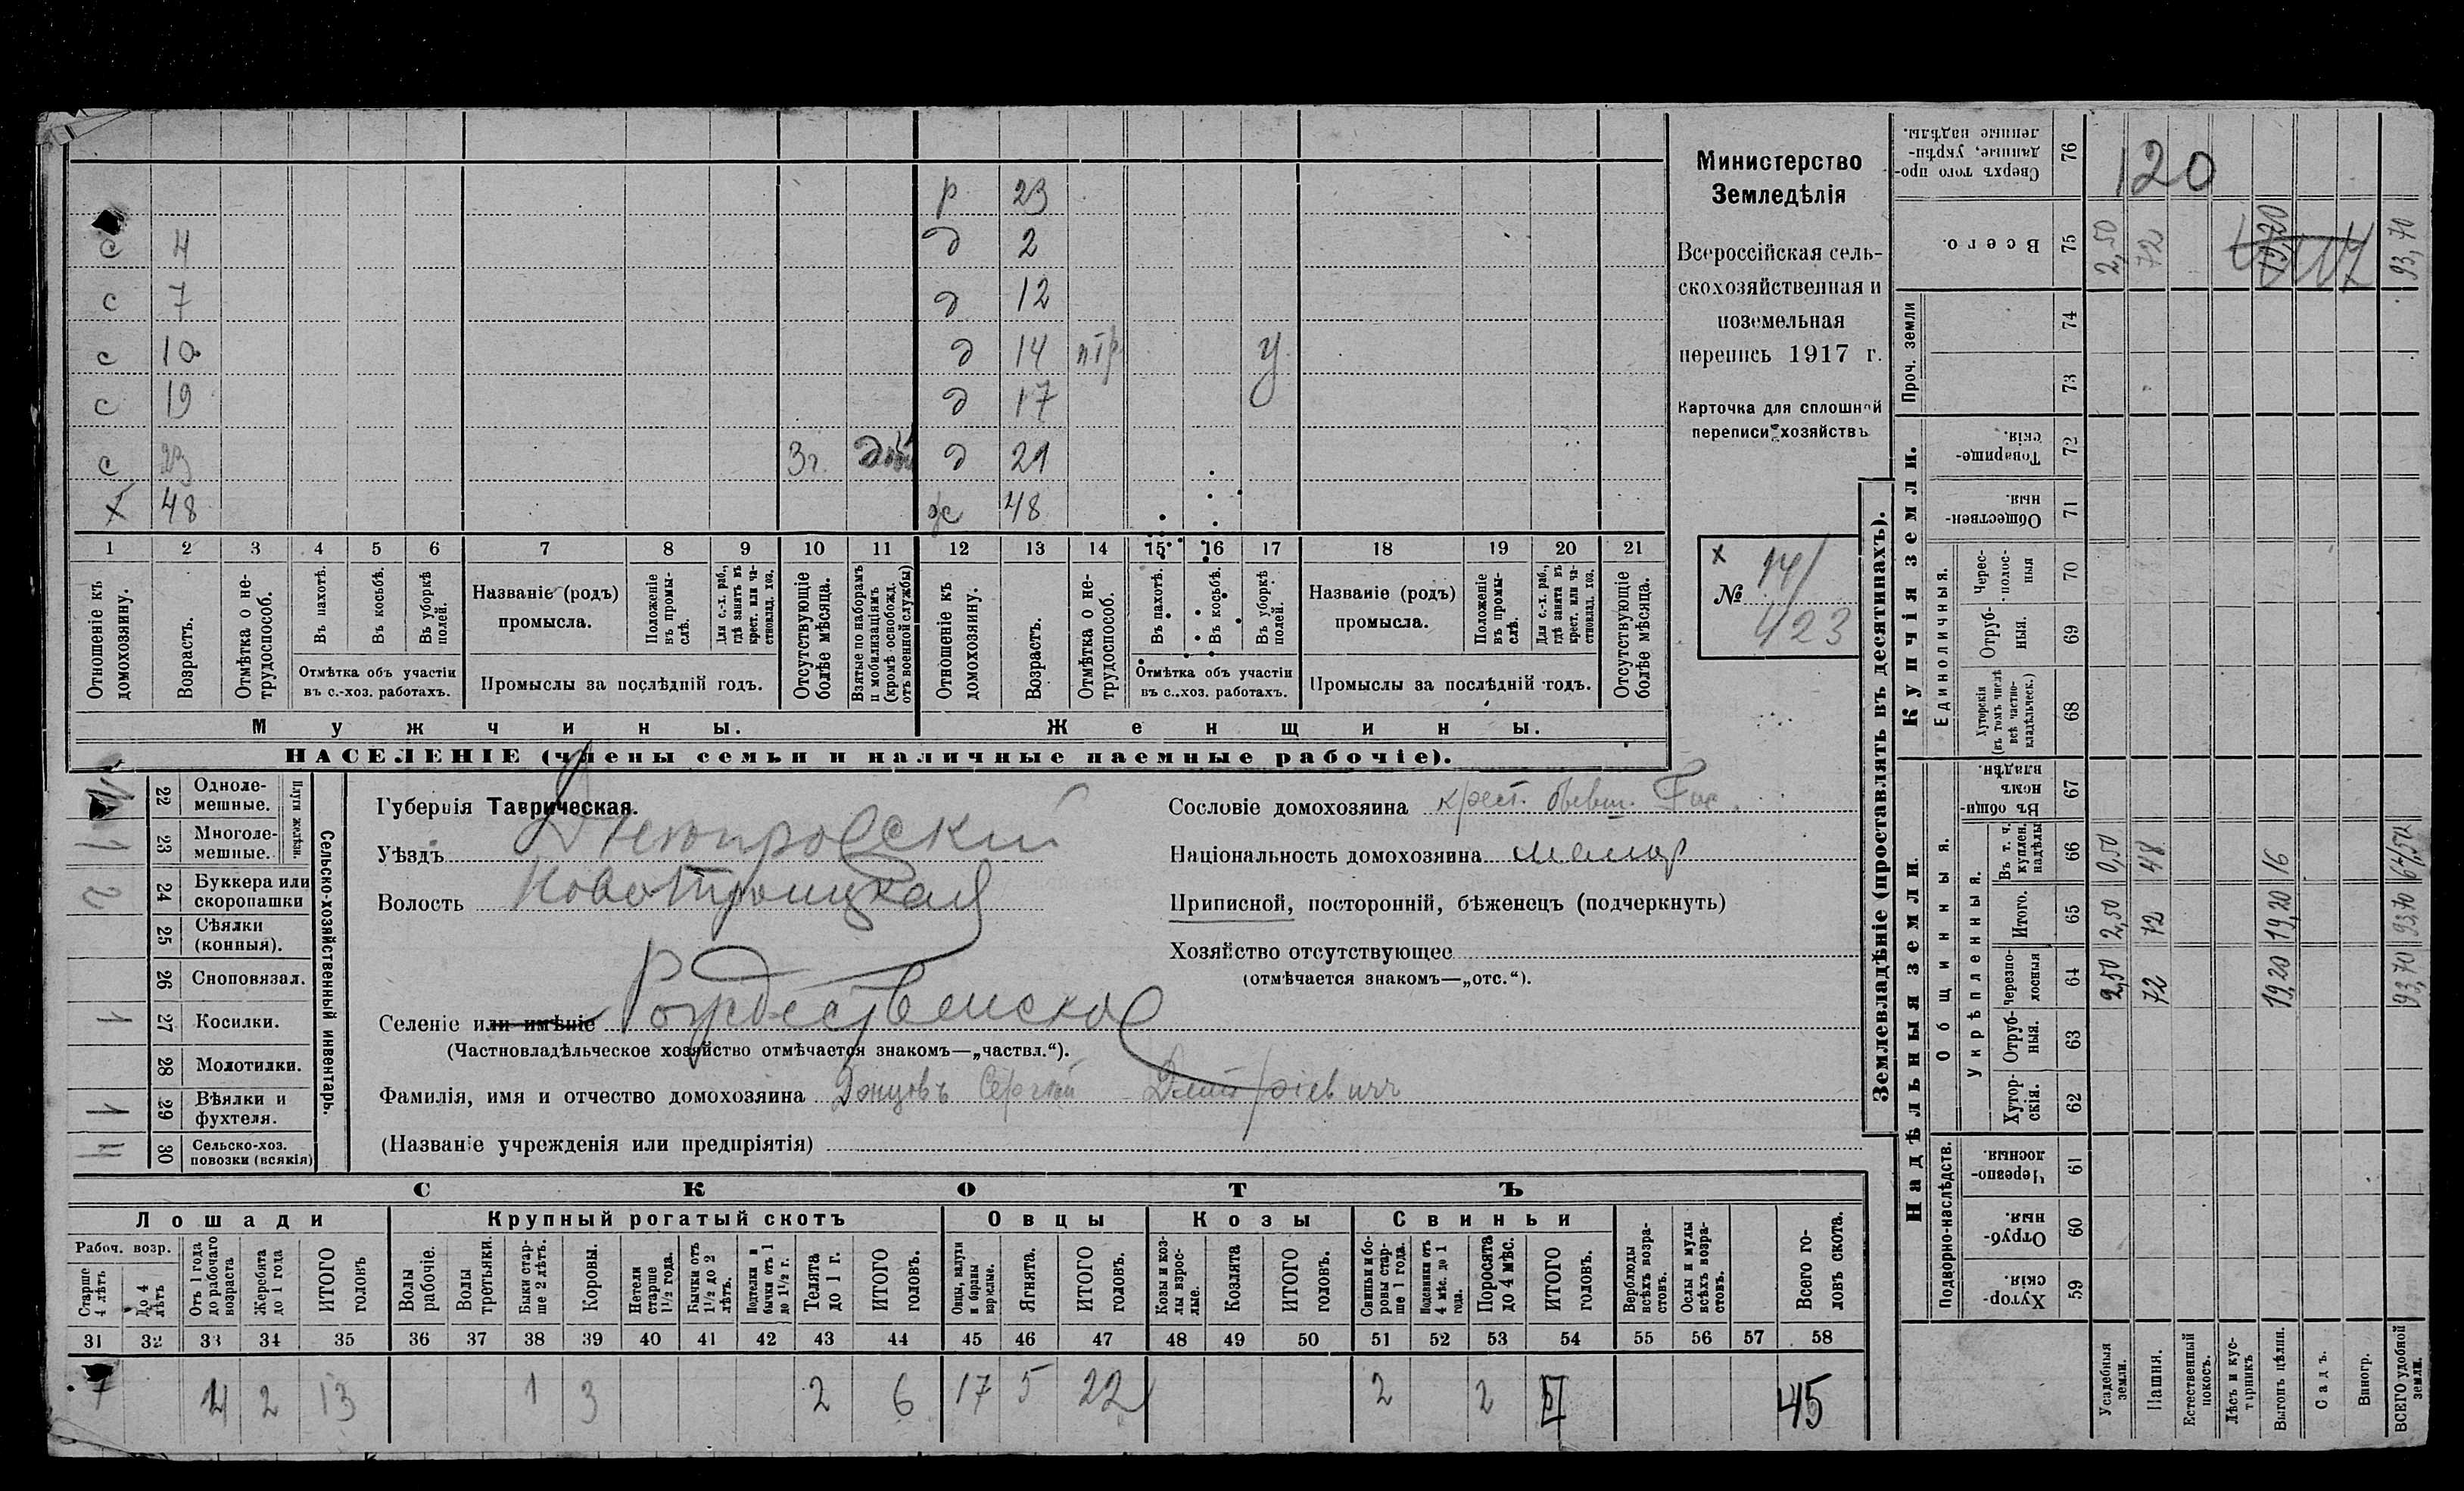 р 23
с 4 д 2
с 7 д 12
с 10 д 14 птр у
с 19 д 17
с 23 3 г. д 21
х 48 ж 48
1 2 3 4 5 6 7 8 9 10 11 12 13 14 15 16 17 18 19 20 21
Отношеніе къ домохозяину.
Возрастъ.
Отмѣтка о не-трудоспособ.
Въ пахотѣ.
Въ косьбѣ.
Въ уборкѣ полей.
Отмѣтка объ участіи
въ с.-хоз. работахъ.
Названіе (родъ)
промысла.
Положеніе въ промы-слѣ.
Для с.-х. раб., гдѣ занятъ въ крест. или ча-стновлад. хоз.
Промыслы за послѣдній годъ.
Отсутствующіе болѣе мѣсяца.
Взятые по наборамъ и мобилизаціямъ (кромѣ освобожд. отъ военной службы)
Отношеніе къ домохозяину.
Возрастъ.
Отмѣтка о не-трудоспособ.
Въ пахотѣ.
Въ косьбѣ.
Въ уборкѣ полей.
Отмѣтка объ участіи
въ с.-хоз. работахъ.
Названіе (родъ)
промысла.
Положеніе въ промы-слѣ.
Для с.-х. раб., гдѣ занята въ крест. или ча-стновлад. хоз.
Промыслы за послѣдній годъ.
Отсутствующіе болѣе мѣсяца.
Мужчины. Женщины.
НАСЕЛЕНІЕ (члены семьи и наличные наемные рабочіе).
Министерство
Земледѣлія
Всероссійская сель-
скохозяйственная и
поземельная
перепись 1917 г.
Карточка для сплошной
переписи хозяйствъ
х 14/
№ 423
22 Одноле-мешные.
1 23 Многоле-мешные.
Плуги желѣзн.
2 24 Буккера или скоропашки
25 Сѣялки (конныя).
26 Сноповязал.
1 27 Косилки.
28 Молотилки.
1 29 Вѣялки и фухтеля.
4 30 Сельско-хоз. повозки (всякія)
Сельско-хозяйственный инвентарь.
Губернія Таврическая.
Уѣздъ Днепровский
Волость Новотроицкая
Селеніе или имѣніе Рождественское
(Частновладѣльческое хозяйство отмѣчается знакомъ—„частвл.“).
Фамилія, имя и отчество домохозяина Донцовъ Сергѣй Дмитріевичъ
(Названіе учрежденія или предпріятія)
Сословіе домохозяина крест. бывш. Гос.
Національность домохозяина малор
Приписной, посторонній, бѣженецъ (подчеркнуть)
Хозяйство отсутствующее
(отмѣчается знакомъ—„отс.“).
СКОТЪ
Лошади Крупный рогатый скотъ Овцы Козы Свиньи
Рабоч. возр.
Старше 4 лѣтъ
До 4 лѣтъ
Отъ 1 года до рабочаго возраста
Жеребята до 1 года
ИТОГО головъ
Волы рабочіе.
Волы третьяки.
Быки стар-ше 2 лѣтъ.
Коровы.
Нетели старше 1½ года.
Бычки отъ 1½ до 2 лѣтъ.
Подтелки и бычки отъ 1 до 1½ г.
Телята до 1 г.
ИТОГО головъ.
Овцы, валухи и бараны взрослые.
Ягнята.
ИТОГО головъ.
Козы и коз-лы взрос-лые.
Козлята
ИТОГО головъ.
Свиньи и бо-ровы стар-ше 1 года.
Подсвинки отъ 4 мѣс. до 1 года.
Поросята до 4 мѣс.
ИТОГО головъ.
Верблюды всѣхъ возра-стовъ.
Ослы и мулы всѣхъ возра-стовъ.
Всего го-ловъ скота.
31 32 33 34 35 36 37 38 39 40 41 42 43 44 45 46 47 48 49 50 51 52 53 54 55 56 57 58
7 4 2 13 1 3 2 6 17 5 22 2 2 45
Землевладѣніе (проставлять въ десятинахъ).
Надѣльныя земли. Купчія земли. Проч. земли
Подворно-наслѣдств. Общинныя. Единоличныя.
Укрѣпленныя.
Хутор-скія. 59
Отруб-ныя. 60
Черезпо-лосныя. 61
Хутор-скія. 62
Отруб-ныя. 63
Черезпо-лосныя 64
Итого. 65
Въ т. ч. куплен. надѣлы 66
Въ общин-номъ владѣн. 67
Хуторскія (въ томъ числѣ всѣ частно-владѣльческ.) 68
Отруб-ныя. 69
Черес-полос-ныя 70
Обществен-ныя. 71
Товарище-скія. 72
73
74
Всего. 75
Сверхъ того про-данные, укрѣп-ленные надѣлы. 76
120
Усадебныя земли. 2,50 2,50 0,50 2,50
Пашня. 72 72 48 72
Естественный покосъ.
Лѣсъ и кус-тарникъ
Выгонъ цѣлин. 19,20 19,20 16 19,20
Садъ.
Виногр.
ВСЕГО удобной земли. 93,70 93,70 64,50 93,70